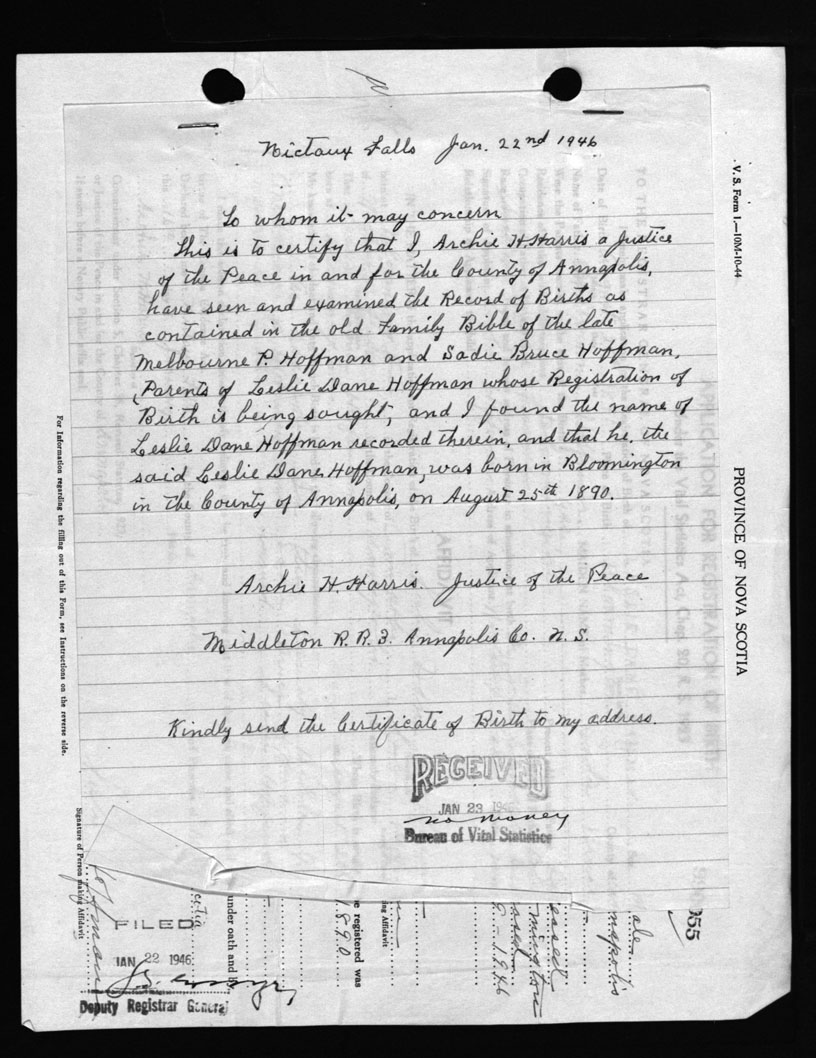 Nictaux Falls Jan. 22nd 1946
To whom it may concern
This is to certify that I, Archie H. Harris a Justice
of the Peace in and for the County of Annapolis,
have seen and examined the Record of Births as
contained in the old Family Bible of the late
Melbourne P. Hoffman and Sadie Bruce Hoffman,
Parents of Leslie Dane Hoffman whose Registration of
Birth is being sought, and I found the name of
Leslie Dane Hoffman recorded therein, and that he, the
said Leslie Dane Hoffman, was born in Bloomington
in the County of Annapolis, on August 25th 1890.
Archie H. Harris. Justice of the Peace
Middleton R.R.3. Annapolis Co. N.S.
Kindly send the Certificate of Birth to my address.
RECEIVED
JAN 23 194
no money
Bureau of Vital Statistics
V. S. Form 1.—10M-10-44
PROVINCE OF NOVA SCOTIA
For Information regarding the filling out of this Form, see Instructions on the reverse side.
Signature of Person making Affidavit
FILED
JAN 22 1946
Deputy Registrar General
under oath and
e registered was
1890
ing Affidavit
1946
55